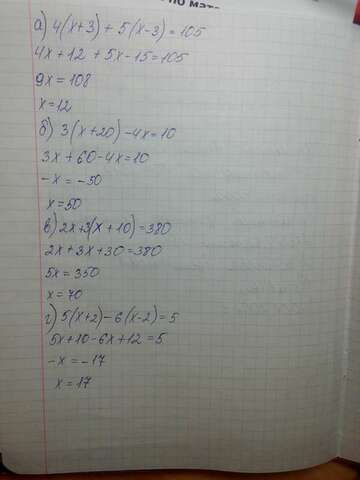 по мате
а) 4(x+3) + 5(x-3) = 105
4x + 12 + 5x - 15 = 105
9x = 108
x = 12
б) 3(x+20) - 4x = 10
3x + 60 - 4x = 10
-x = -50
x = 50
в) 2x + 3(x + 10) = 380
2x + 3x + 30 = 380
5x = 350
x = 70
г) 5(x+2) - 6(x-2) = 5
5x + 10 - 6x + 12 = 5
-x = -17
x = 17